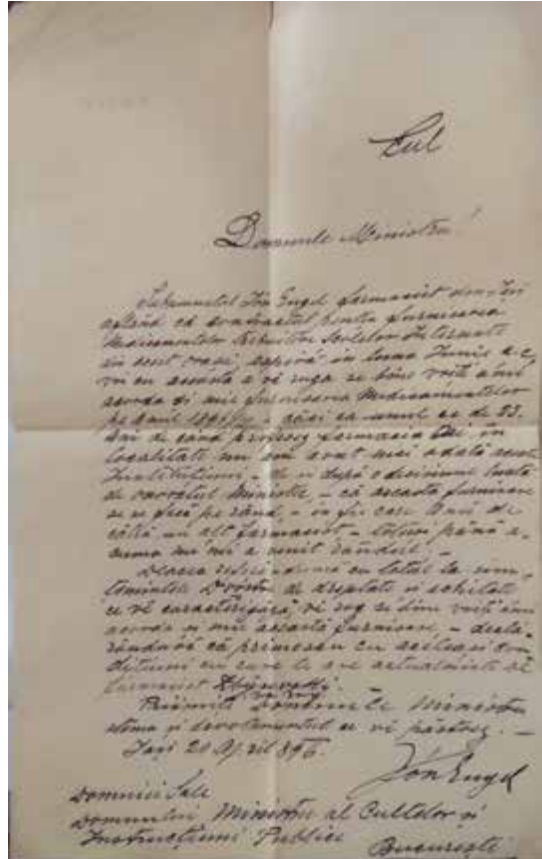 Domnule Ministru!
Subsemnatul Ion Engel farmacist din Iași
aflând că contractul pentru furnisarea
Medicamentelor Școlelor Internate
din acest oraș, espiră în luna Iunie a.c.
vin cu aceasta a vĕ ruga se bine voiți a'mi
acorda și mie furnisarea Medicamentelor
pe anul căci ca unul ce de 23
ani de când farmacia în
localitate nu am avut nici odată
Instituțiuni, de și după o decisiune luată
de onoratul Minister, că aceasta furnisare
se se facă pe rând, în fie care an de
către un alt farmacist, totuși până a-
cuma nu mi a venit rândul.
cu totul la sim-
țimintele D-vóstre de dreptate și echitate
ce vĕ caracterizază, vĕ rog se bine voiți a'mi
acorda și mie aceasta furnisare, decla-
rându vĕ că primesc cu aceleași con-
dițiuni cu care le are actualminte dl
farmacist
Primiți vĕ rog Domnule Ministru
stima și devotamentul ce vĕ păstrez.
Iași 20 April 896.
Ion Engel
Domniei Sale
Domnului Ministru al Cultelor și
Instrucțiunei Publice
București